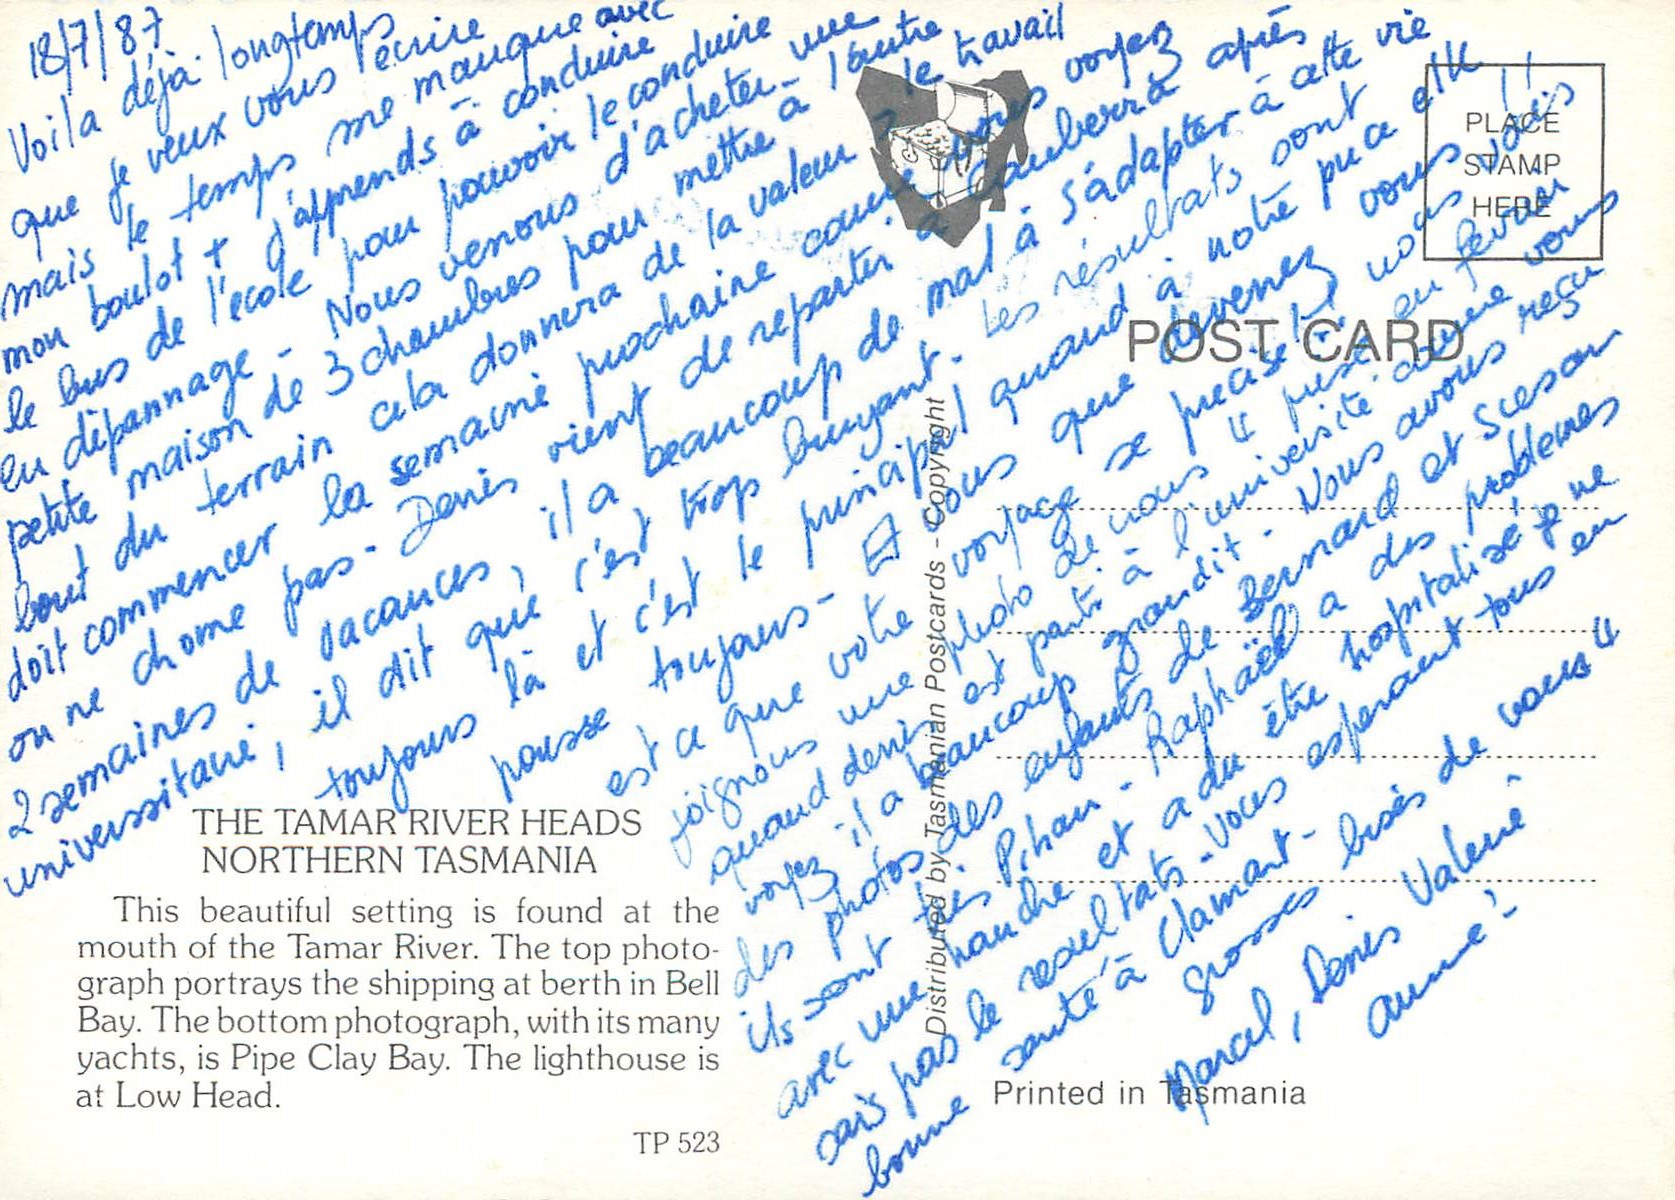 18/7/87
Voila déjà longtemps
que je veux vous écrire
mais le temps me manque avec
mon boulot + j'apprends à conduire
le bus de l'école pour pouvoir le conduire
en dépannage - Nous venons d'acheter une
petite maison de 3 chambres pour mettre à l'autre
bout du terrain cela donnera de la valeur, le travail
doit commencer la semaine prochaine comme vous voyez
on ne chome pas - Denis vient de repartir à Canberra après
2 semaines de vacances, il a beaucoup de mal à s'adapter à cette vie
universitaire, il dit que c'est trop bruyant. Les résultats sont
toujours là et c'est le principal quand à notre puce elle
pousse toujours - Et vous que devenez vous !!
est ce que votre voyage se précise !! nous vous
joignons une photo de nous 4 prise en février
quand denis est parti à l'université comme vous
voyez il a beaucoup grandit - Nous avons reçu
des photos des enfants de Bernard et Scesson
ils sont très Pihan - Raphaël a des problèmes
avec une hanche et a du être hospitalisé je ne
sais pas le resultats - vous esperant tous en
bonne santé à Clamart -
grosses bises de vous 4
Marcel, Denis Valerie
Anne -
PLACE
STAMP
HERE
POST CARD
Distributed by Tasmanian Postcards - Copyright
THE TAMAR RIVER HEADS
NORTHERN TASMANIA
This beautiful setting is found at the
mouth of the Tamar River. The top photo-
graph portrays the shipping at berth in Bell
Bay. The bottom photograph, with its many
yachts, is Pipe Clay Bay. The lighthouse is
at Low Head.
TP 523
Printed in Tasmania